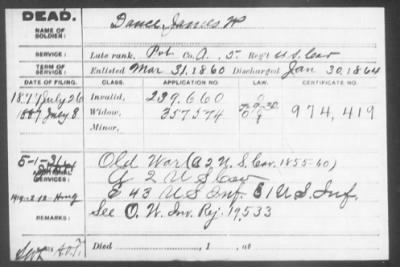 DEAD.
NAME OF SOLDIER: Dance, James W
SERVICE: Late rank, Pvt Co. A, 5 Reg't U S Cav
TERM OF SERVICE: Enlisted Mar 31, 1860 Discharged Jan 30, 1864
DATE OF FILING. CLASS. APPLICATION NO. LAW. CERTIFICATE NO.
1877 July 26 Invalid, 239.660
1887 July 8 Widow, 357574 974,419
Minor,
5-1-31 Old War (G 2 U. S. Cav. 1855-60)
SERVICES: G 2 U S Cav
E 43 U S Inf. E 1 U. S. Inf.
REMARKS: See O. W. Inv. Rej. 19,533
Died , 1 , at